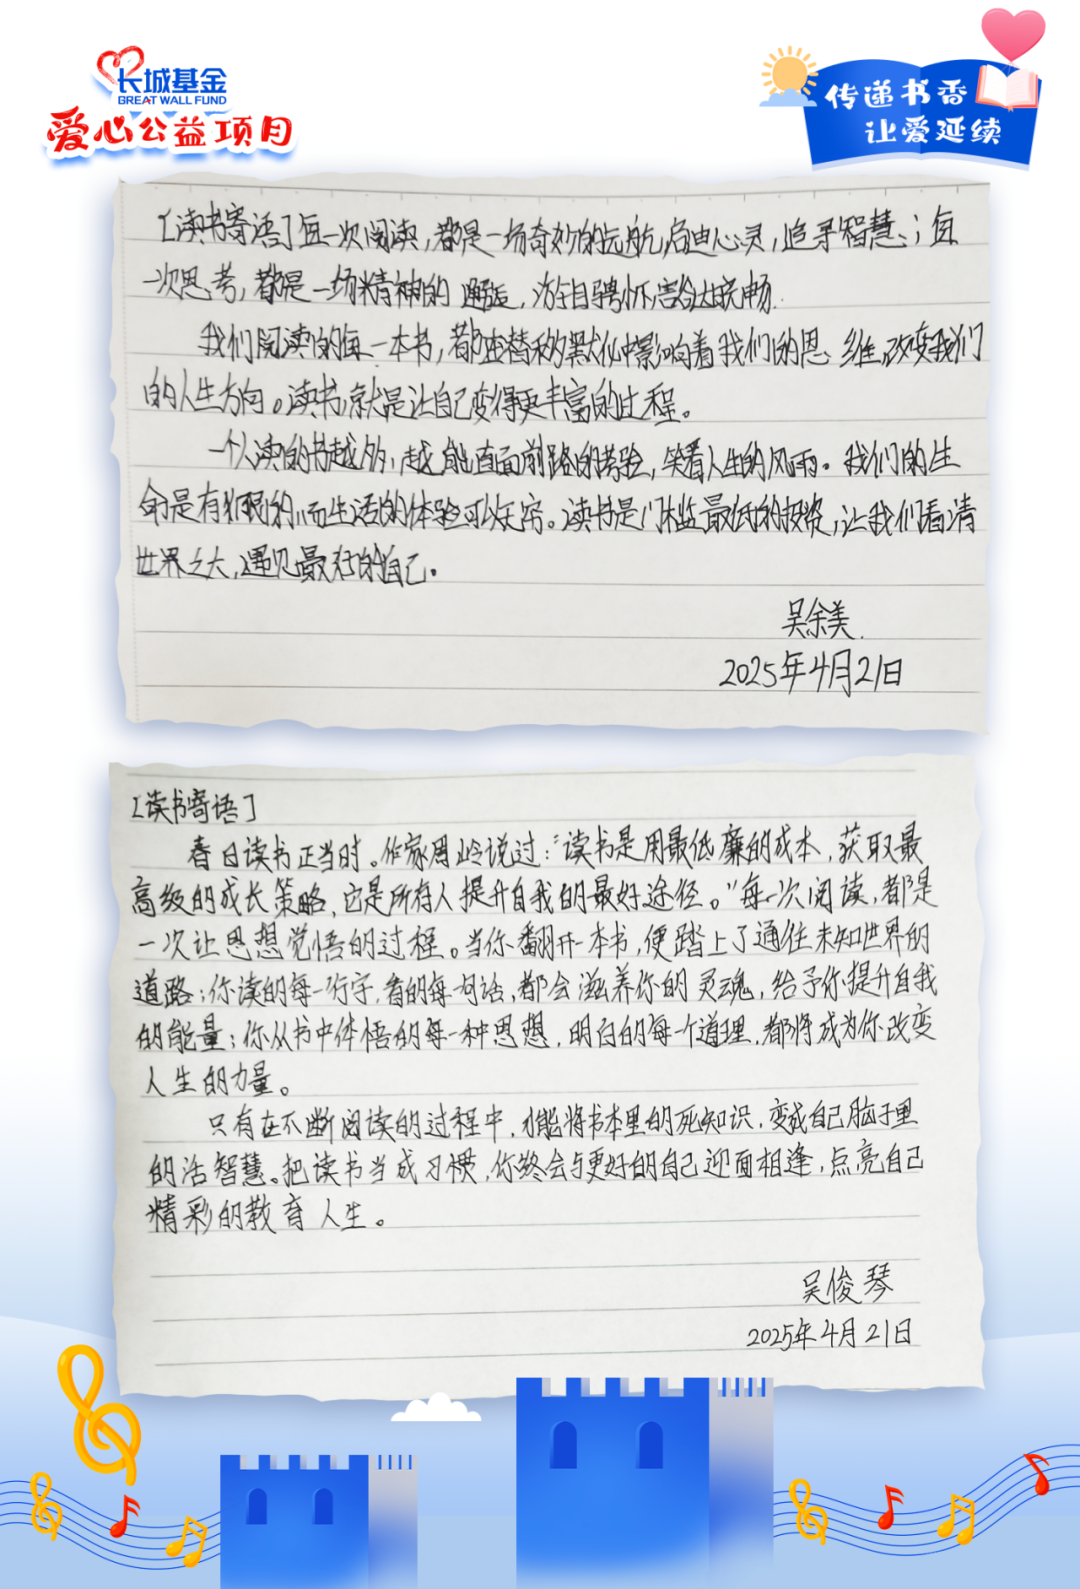 长城基金
GREAT WALL FUND
爱心公益项目
传递书香
让爱延续
[读书寄语]每一次阅读，都是一场奇妙的远航，启迪心灵，追寻智慧；每
一次思考，都是一场精神的邂逅，
我们阅读的每一本书，都在潜移默化中影响着我们的思维，改变我们
的人生方向。读书，就是让自己变得更丰富的过程。
一个人读的书越多，越能直面前路的考验，笑看人生的风雨。我们的生
命是有限的，而生活的体验可以无穷。读书是门槛最低的投资，让我们看清
世界之大，遇见最好的自己。
吴余美
2025年4月21日
[读书寄语]
春日读书正当时。作家周岭说过："读书是用最低廉的成本，获取最
高级的成长策略，它是所有人提升自我的最好途径。"每一次阅读，都是
一次让思想觉悟的过程。当你翻开一本书，便踏上了通往未知世界的
道路；你读的每一行字，看的每一句话，都会滋养你的灵魂，给予你提升自我
的能量；你从书中体悟的每一种思想，明白的每一个道理，都将成为你改变
人生的力量。
只有在不断阅读的过程中，才能将书本里的死知识，变成自己脑子里
的活智慧。把读书当成习惯，你终会与更好的自己迎面相逢，点亮自己
精彩的教育人生。
吴俊琴
2025年4月21日